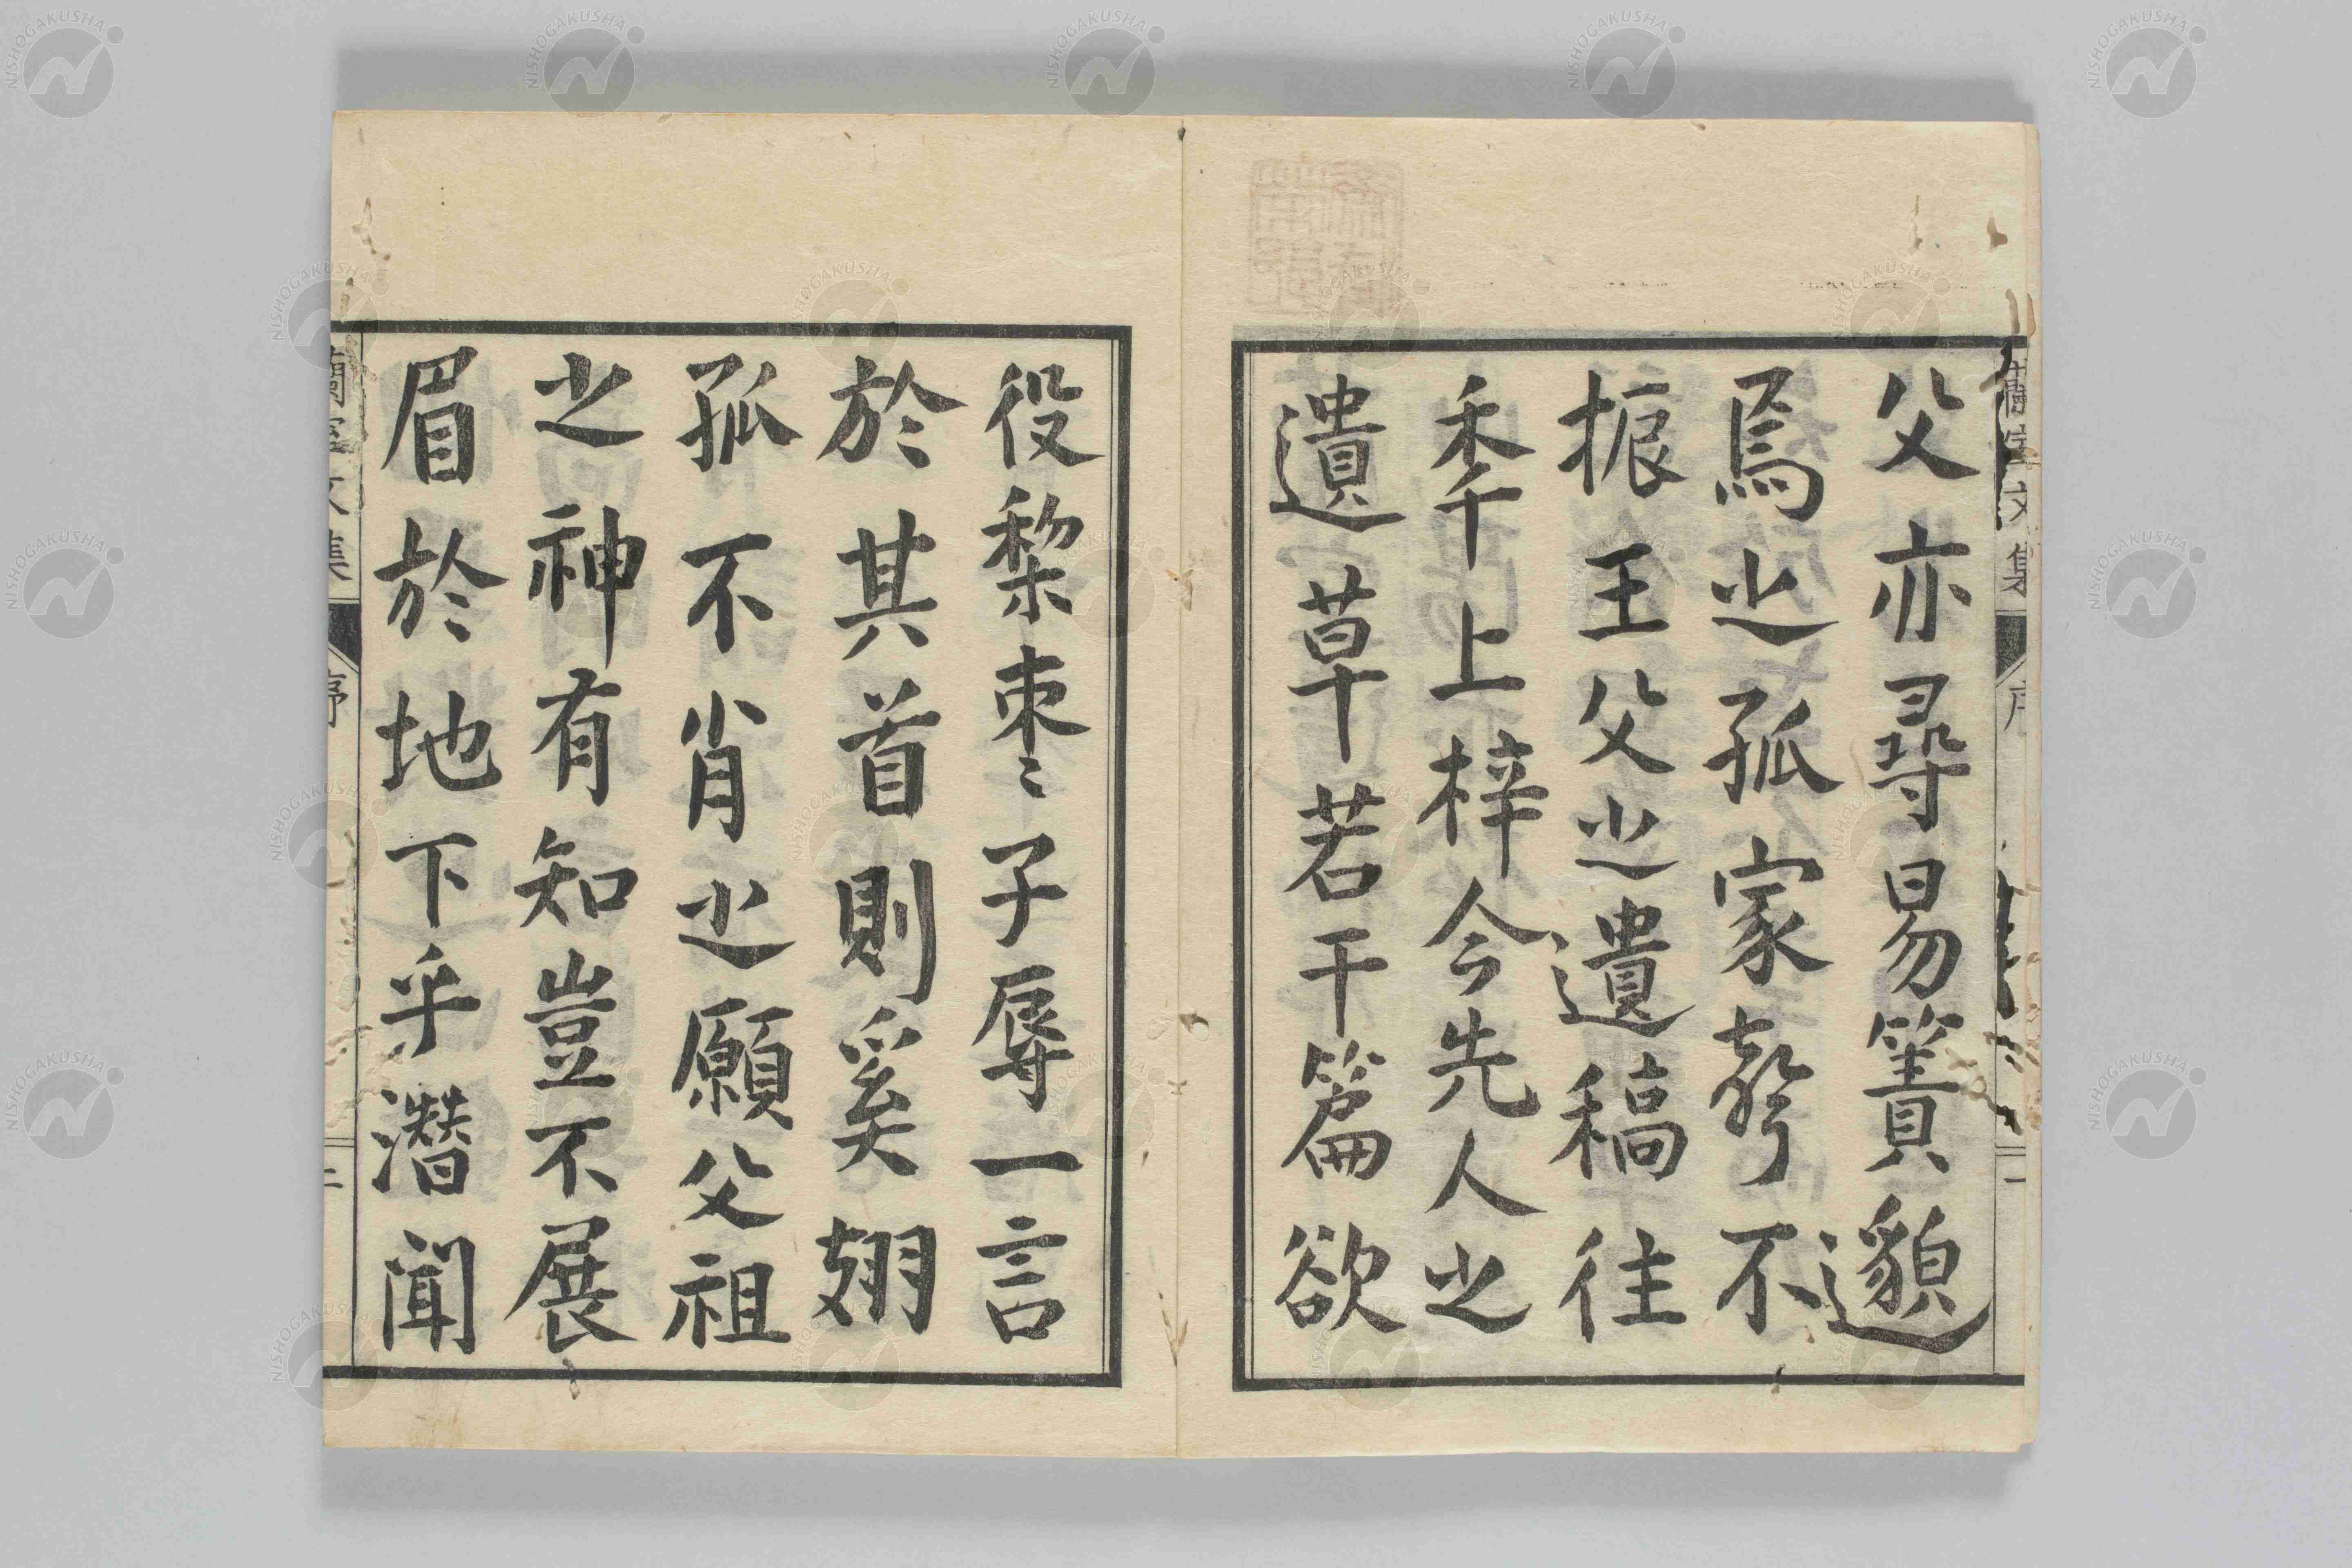 父亦尋易簀邈
焉之孤家聲不
振王父之遺稿往
季上梓今先人之
遺草若干篇欲
役棃枣〻子辱一言
於其首則奚翅
孤不肖之願父祖
之神有知豈不展
眉於地下乎潛聞
蘭室文集
序
二
NISHOGAKUSHA